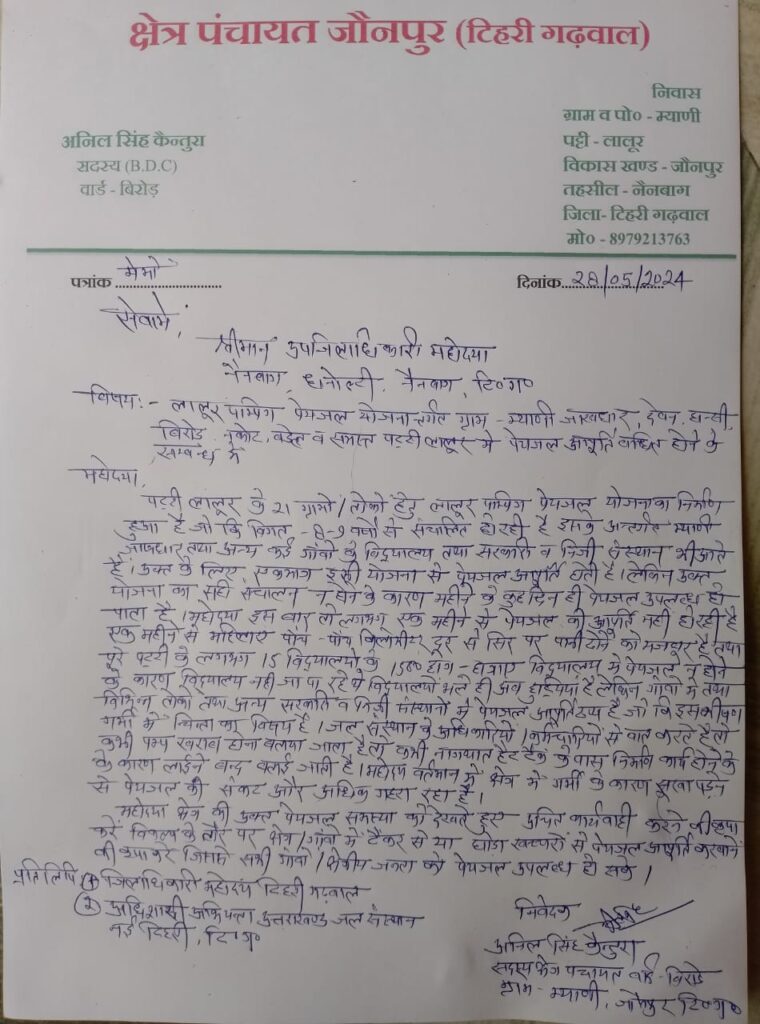 क्षेत्र पंचायत जौनपुर (टिहरी गढ़वाल)
अनिल सिंह कैन्तुरा
सदस्य (B.D.C)
वार्ड - बिरोड़
निवास
ग्राम व पो० - म्याणी
पट्टी - लालूर
विकास खण्ड - जौनपुर
तहसील - नैनबाग
जिला- टिहरी गढ़वाल
मो० - 8979213763
पत्रांक मेमो
दिनांक 28/05/2024
सेवामें,
श्रीमान उपजिलाधिकारी महोदया
नैनबाग, धनोल्टी, नैनबाग, टि०ग०
विषय:- लालूर पम्पिंग पेयजल योजनान्तर्गत ग्राम - म्याणी जाखधार, देवन,
बिरोड़ व समस्त पट्टी लालूर मे पेयजल आपूर्ति बाधित होने के
सम्बन्ध मे
महोदया,
पट्टी लालूर के 21 ग्रामो / तोको हेतु लालूर पम्पिंग पेयजल योजना का निर्माण
हुआ है जो कि विगत - 8-9 वर्षों से संचालित हो रही है इसके अन्तर्गत म्याणी
जाखधार तथा अन्य कई गांवो के विद्यालय तथा सरकारी व निजी संस्थान भी आते
है। उक्त के लिए, एकमात्र इसी योजना से पेयजल आपूर्ति होती है। लेकिन उक्त
योजना का सही संचालन न होने के कारण महीने के कुछ दिन ही पेयजल उपलब्ध हो
पाता है। महोदया इस बार तो लगभग एक महीने से पेयजल की आपूर्ति नही हो रही है
एक महीने से महिलाए पांच - पांच किलोमीटर दूर से सिर पर पानी ढोने को मजबूर है तथा
पूरे पट्टी के लगभग 15 विद्यालयो के 1500 छात्र - छात्राए विद्यालय मे पेयजल न होने
के कारण विद्यालय नही जा पा रहे थे विद्यालयो भले ही अब छुट्टियां है लेकिन गांवो मे तथा
विभिन्न तोको तथा अन्य सरकारी व निजी संस्थानो मे पेयजल आपूर्ति ठप्प है जो कि इस भीषण
गर्मी मे चिन्ता का विषय है। जल संस्थान के अधिकारियो / कर्मचारियो से बात करते है तो
कभी पम्प खराब होना बताया जाता है तो कभी हेड टैंक के पास निर्माण कार्य होने के
के कारण लाईने बन्द बताई जाती है। महोदय वर्तमान मे क्षेत्र मे गर्मी के कारण सूखा पड़ने
से पेयजल की संकट और अधिक गहरा रहा है।
महोदया क्षेत्र की उक्त पेयजल समस्या को देखते हुए उचित कार्यवाही करने की कृपा
करें विकल्प के तौर पर क्षेत्र / गांवो मे टैंकर से या घोडा खच्चरो से पेयजल आपूर्ति करवाने
की कृपा करे जिससे सभी गांवो / क्षेत्रीय जनता को पेयजल उपलब्ध हो सके।
प्रतिलिपि ① जिलाधिकारी महोदय टिहरी गढ़वाल
② अधिशासी अभियन्ता उत्तराखण्ड जल संस्थान
नई टिहरी, टि०ग०
निवेदक
अनिल सिंह कैन्तुरा
सदस्य क्षेत्र पंचायत वार्ड - बिरोड़
ग्राम - म्याणी, जौनपुर टि०ग०